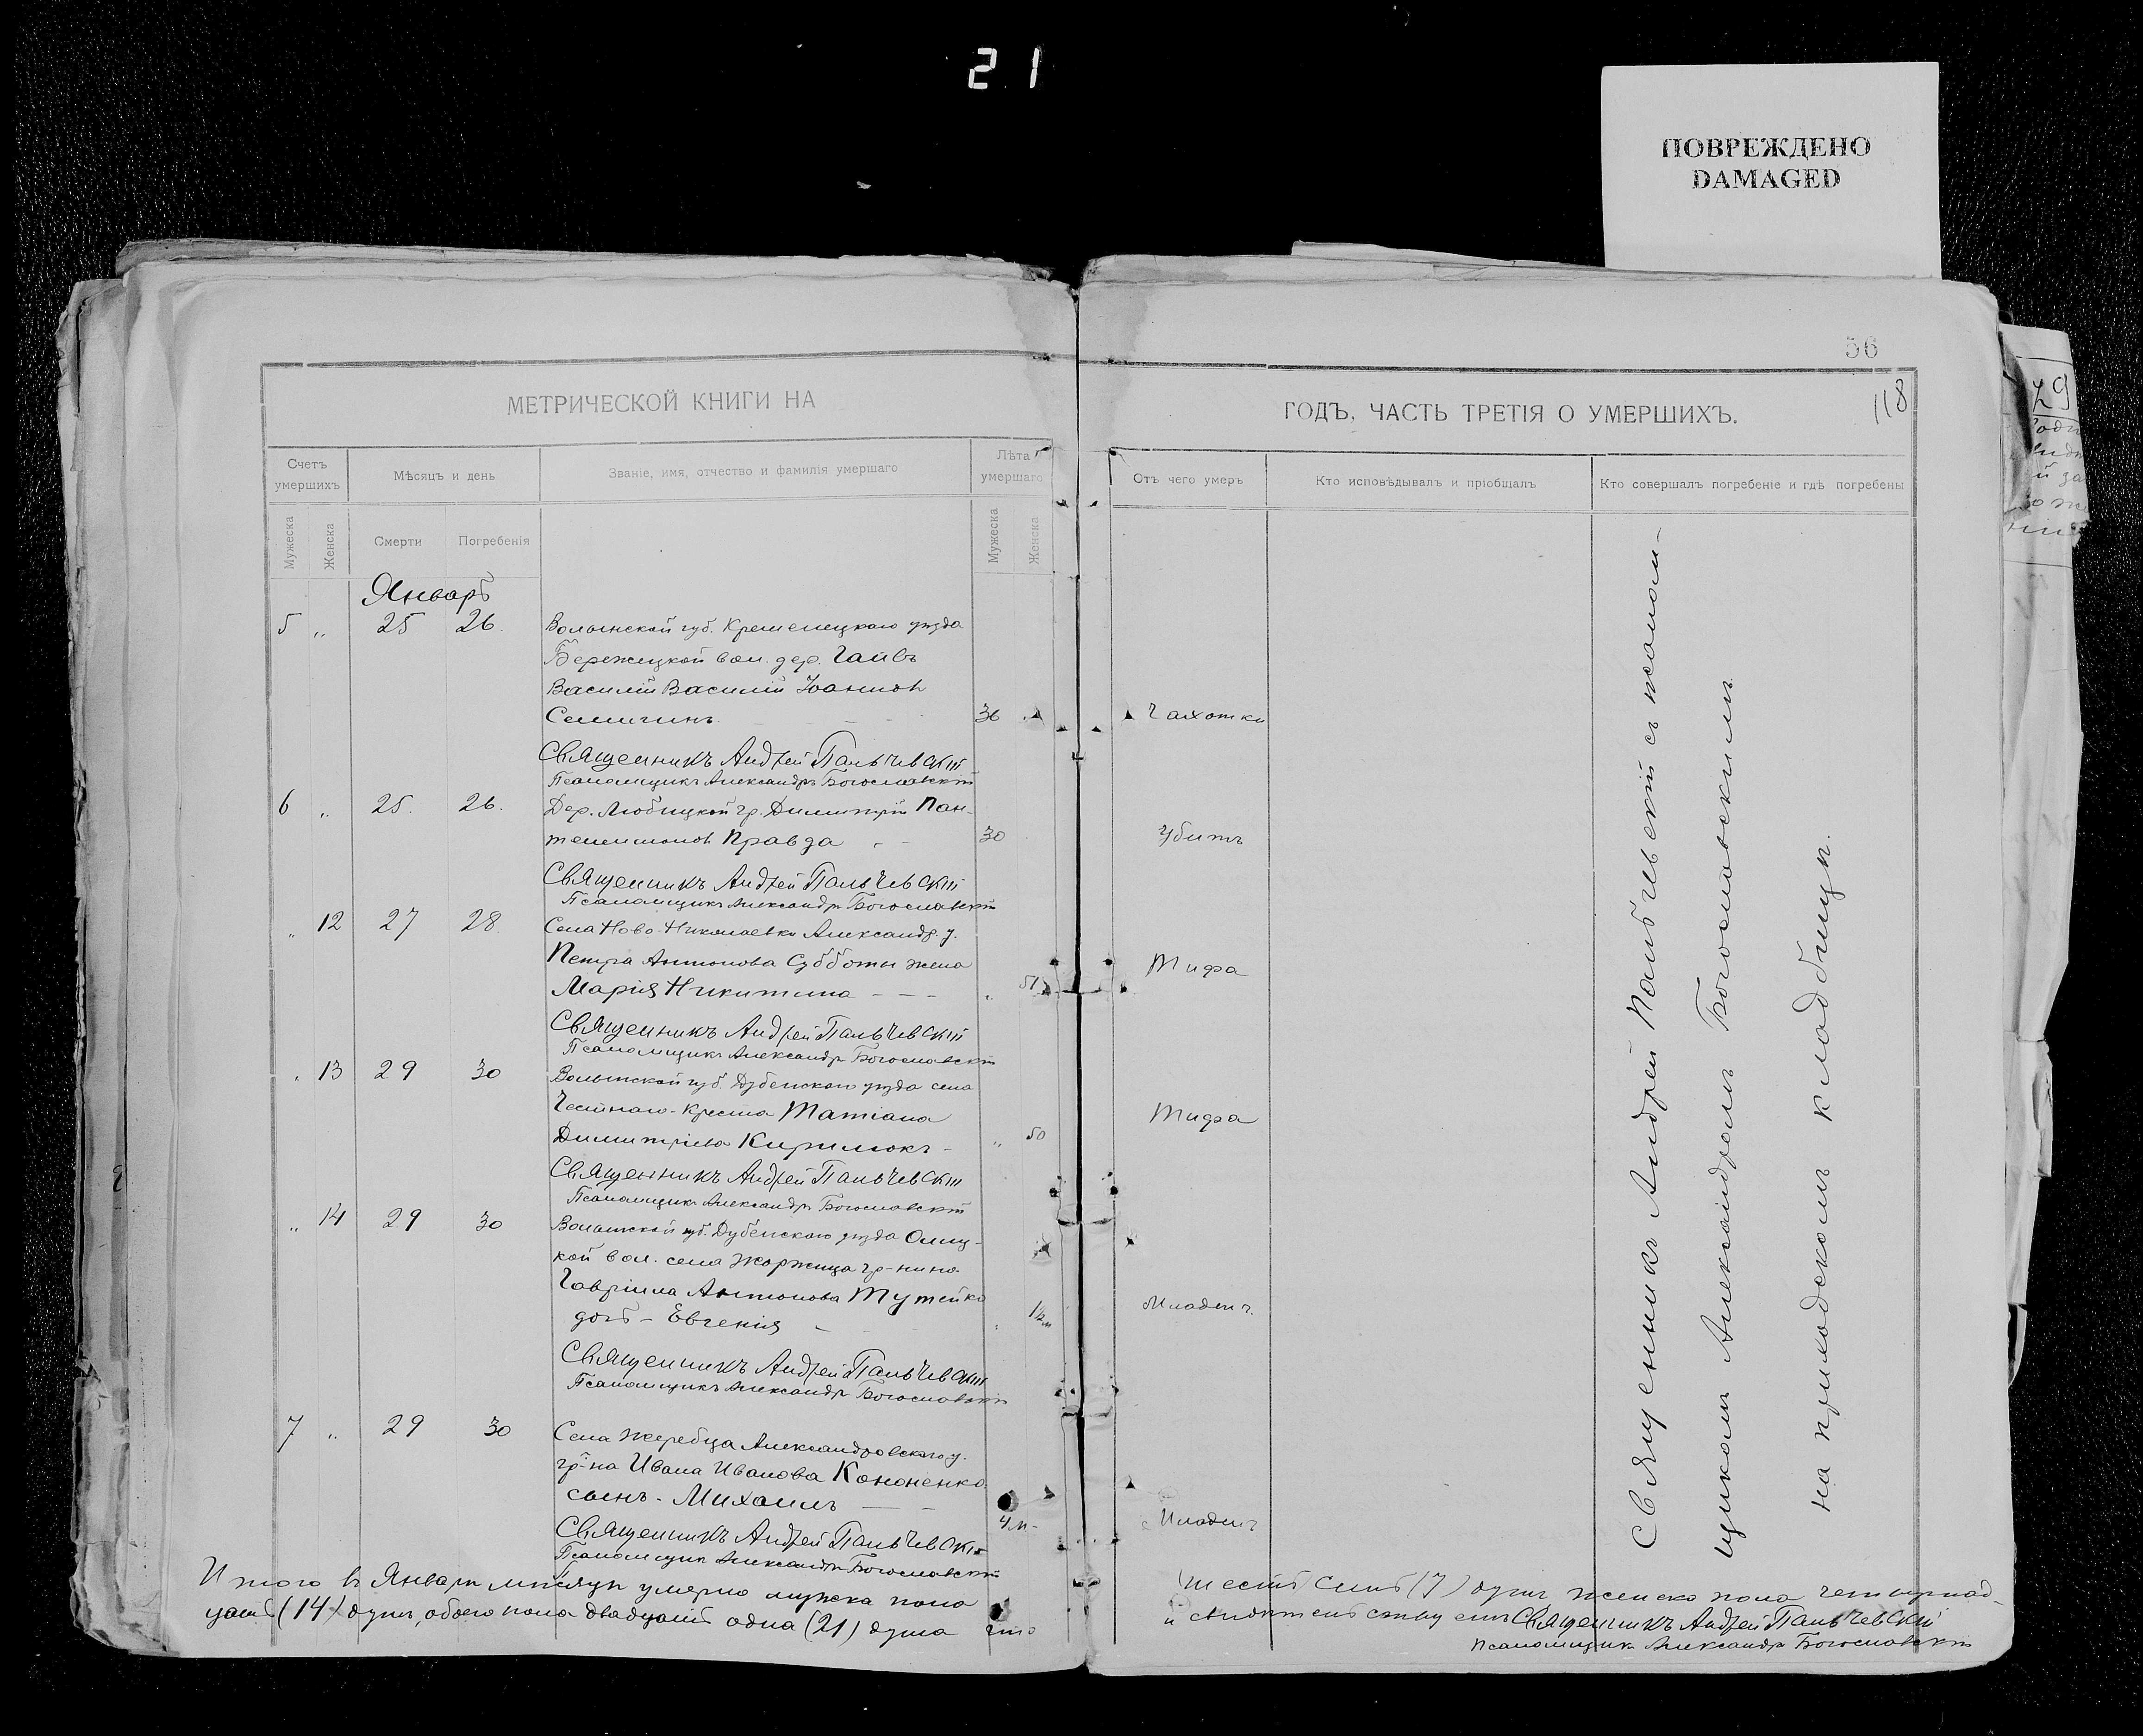 21
ПОВРЕЖДЕНО
DAMAGED
56
118
29
МЕТРИЧЕСКОЙ КНИГИ НА
ГОДЪ, ЧАСТЬ ТРЕТІЯ О УМЕРШИХЪ.
Счетъ умершихъ
Мѣсяцъ и день
Званіе, имя, отчество и фамилія умершаго
Лѣта умершаго
Отъ чего умеръ
Кто исповѣдывалъ и пріобщалъ
Кто совершалъ погребеніе и гдѣ погребены
Мужеска
Женска
Смерти
Погребенія
Мужеска
Женска
Январь
5 „ 25 26. Волынской губ. Кременецкаго уѣзда
Бережецкой вол. дер.
Василій Василій Іоаннов
36 Чахотки
Священникъ Андрей Пальчевскій
Псаломщикъ Александръ Богословскій
6 „ 25. 26. Дер. Любицкой гр. Димитрій Пан-
телимонов Правда 30 Убитъ
Священникъ Андрей Пальчевскій
Псаломщикъ Александръ Богословскій
„ 12 27 28. Села Ново-Николаевки Александр. у.
Петра Антонова Субботы жена
Марія Никитина - - - „ 51 Тифа
Священникъ Андрей Пальчевскій
Псаломщикъ Александръ Богословскій
„ 13 29 30 Волынской губ. Дубенскаго уѣзда села
Честнаго-Креста Татіана
Димитріева Кирилюкъ - „ 50 Тифа
Священникъ Андрей Пальчевскій
Псаломщикъ Александръ Богословскій
„ 14 29 30 Волынской губ. Дубенскаго уѣзда Олыц-
кой вол. села Жоржища гр-нина
Гавріила Антонова
дочь - Евгенія - Младен.
Священникъ Андрей Пальчевскій
Псаломщикъ Александръ Богословскій
7 „ 29 30 Села Жеребца Александровскаго у.
гр-на Ивана Иванова Кононенко
сынъ - Михаилъ 4 м - Младен
Священникъ Андрей Пальчевскій
Псаломщикъ Александръ Богословскій
Священникъ Андрей Пальчевскій съ псалом-
щикомъ Александромъ Богословскимъ
на приходскомъ кладбищѣ.
Итого въ Январѣ мѣсяцѣ умерло мужска пола семь (7) душъ женска пола четырнад-
цать (14) душъ, обоего пола двадцать одна (21) душа что и свидѣтельствуемъ Священникъ Андрей Пальчевскій
Псаломщикъ Александръ Богословскій